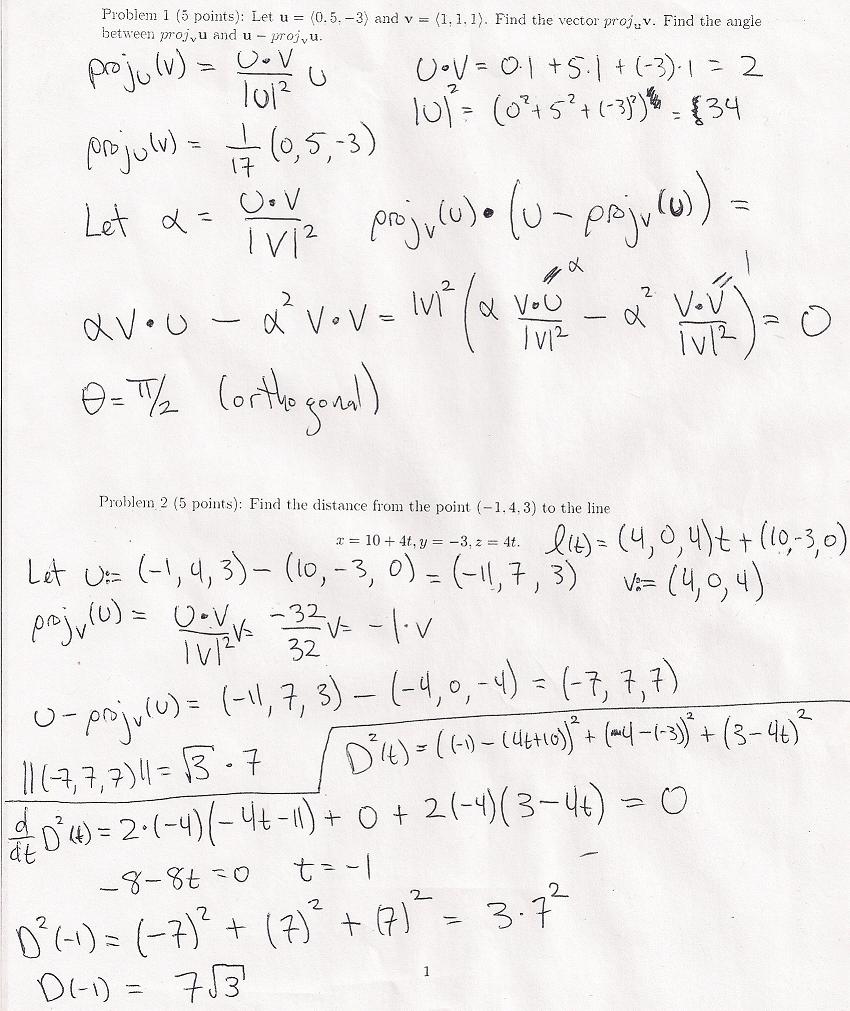 Problem 1 (5 points): Let u = ⟨0, 5, −3⟩ and v = ⟨1, 1, 1⟩. Find the vector proj_u v. Find the angle
between proj_v u and u − proj_v u.
proj_u(v) = (u•v)/|u|² u    u•v = 0·1 + 5·1 + (-3)·1 = 2
|u|² = (0² + 5² + (-3)²) = 34
proj_u(v) = 1/17 (0, 5, -3)
Let α = (u•v)/|v|²    proj_v(u) • (u − proj_v(u)) =
αv•u − α² v•v = |v|² (α (v•u)/|v|² − α² (v•v)/|v|²) = 0
α    1
θ = π/2 (orthogonal)
Problem 2 (5 points): Find the distance from the point (−1, 4, 3) to the line
x = 10 + 4t, y = −3, z = 4t.    l(t) = (4, 0, 4)t + (10, -3, 0)
Let u := (-1, 4, 3) − (10, -3, 0) = (-11, 7, 3)    v := (4, 0, 4)
proj_v(u) = (u•v)/|v|² v = -32/32 v = -1·v
u − proj_v(u) = (-11, 7, 3) − (-4, 0, -4) = (-7, 7, 7)
||(-7, 7, 7)|| = √3 · 7    D²(t) = ((-1) − (4t+10))² + (4 − (-3))² + (3 − 4t)²
d/dt D²(t) = 2·(-4)(-4t − 11) + 0 + 2(-4)(3 − 4t) = 0
-8 − 8t = 0    t = -1
D²(-1) = (-7)² + (7)² + (7)² = 3·7²
D(-1) = 7√3
1